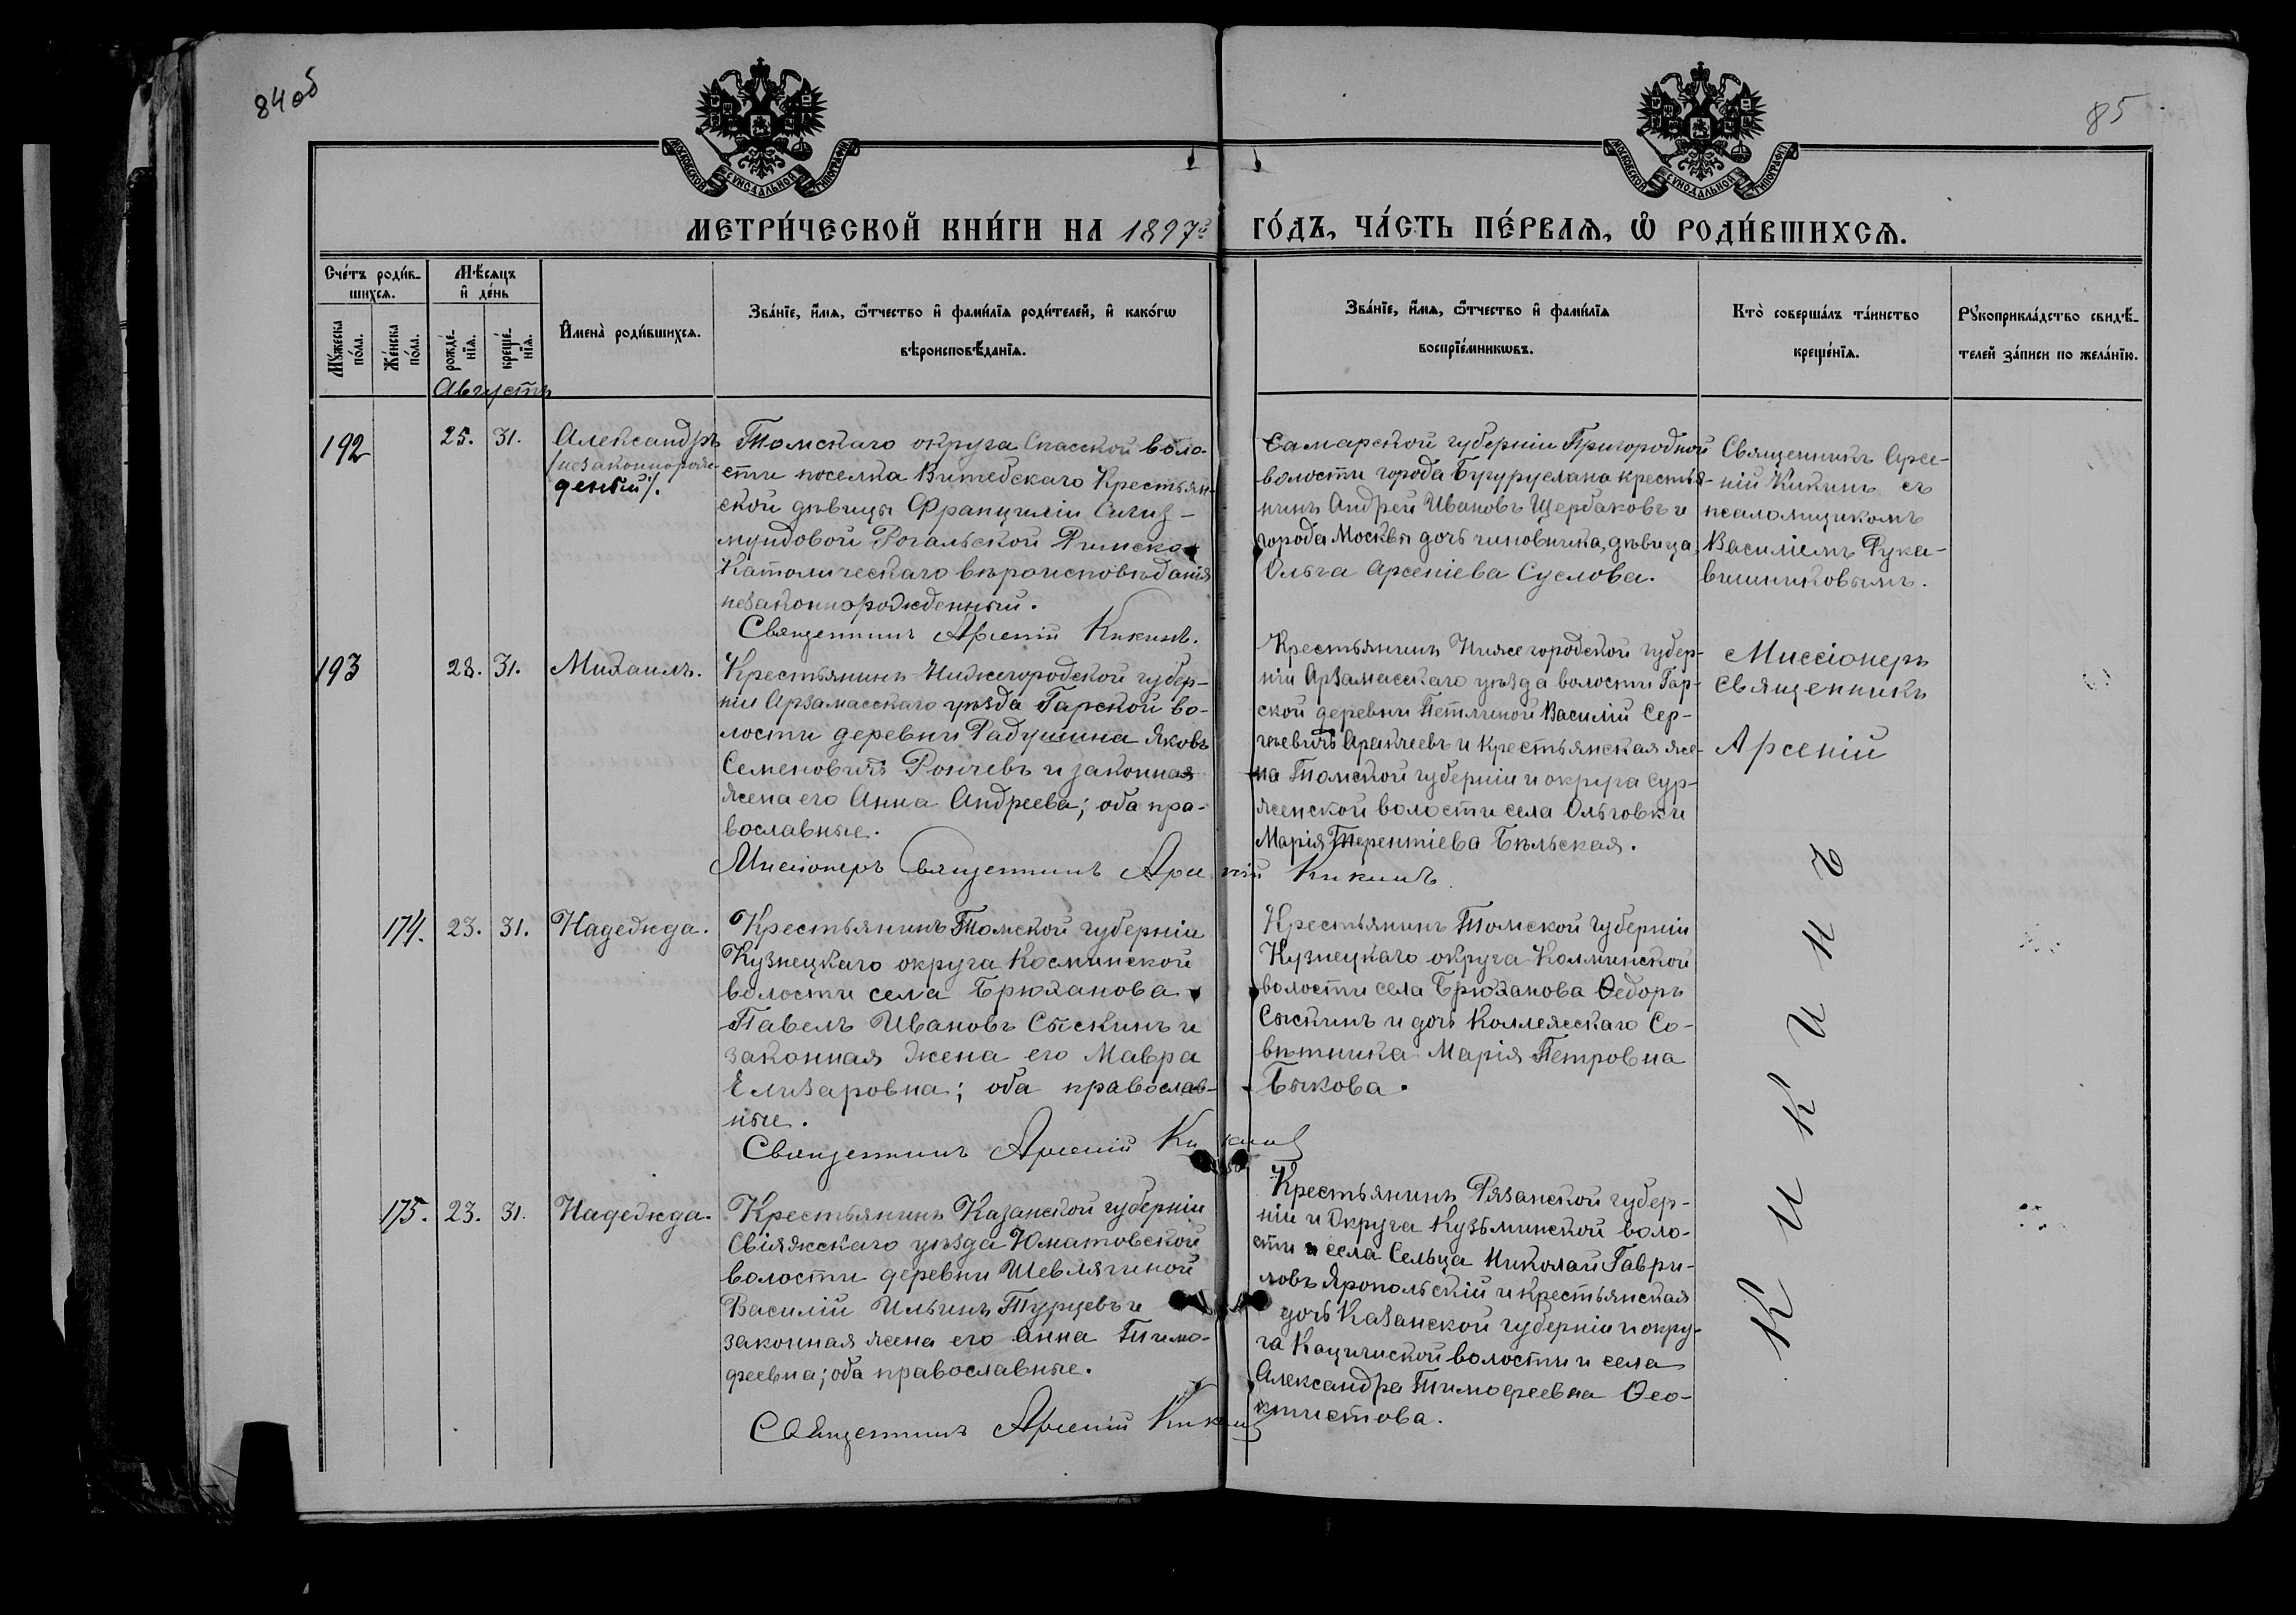 84 об
85
МОСКОВСКОЙ СѴНОДАЛЬНОЙ ТИПОГРАФІИ
МОСКОВСКОЙ СѴНОДАЛЬНОЙ ТИПОГРАФІИ
МЕТРИ́ЧЕСКОЙ КНИ́ГИ НА 1897й ГО́ДЪ, ЧА́СТЬ ПЕ́РВАѦ, Ѡ РОДИ́ВШИХСѦ.
Сче́тъ роди́в-
шихсѧ.
Мꙋ́жеска
по́ла.
Же́нска
по́ла.
Мѣ́сѧцъ
и де́нь
рожде́-
нїѧ.
креще́-
нїѧ.
Имена̀ роди́вшихсѧ.
Зва́нїе, и́мѧ, ѻ́тчество и фами́лїѧ роди́телей, и како́гѡ
вѣроисповѣ́данїѧ.
Зва́нїе, и́мѧ, ѻ́тчество и фами́лїѧ
воспрїе́мникѡвъ.
Кто̀ соверша́лъ та́инство
креще́нїѧ.
Рꙋкоприкла́дство свидѣ́-
телей за́писи по жела́нїю.
Августъ
192
25. 31.
Александръ
/незаконнорож-
денный/.
Томскаго округа Спасской воло-
сти поселка Витебскаго Крестьян-
ской дѣвицы Францилии Сигиз-
мундовой Рогальской Римско
Католическаго вѣроисповѣданія
незаконнорожденный.
Священникъ Арсеній Кикинъ.
Самарской губерніи Пригородной
волости города Бугуруслана крестья-
нинъ Андрей Ивановъ Щербаковъ и
города Москвы дочь чиновника, дѣвица,
Ольга Арсеніева Суслова.
Священникъ Арсе-
ній Кикинъ съ
псаломщикомъ
Василіемъ Рука-
вишниковымъ.
193
28. 31.
Михаилъ.
Крестьянинъ Нижегородской губер-
ніи Арзамасскаго уѣзда Гарской во-
лости деревни Радушина Яковъ
Семеновичъ Рончевъ и законная
жена его Анна Андреева; оба пра-
вославные.
Миссіонеръ Священникъ Арсеній Кикинъ
Крестьянинъ Нижегородской губер-
ніи Арзамасскаго уѣзда волости Гар-
ской деревни Петлиной Василій Сер-
гѣевичъ Аракчеевъ и крестьянская же-
на Томской губерніи и округа Сур-
женской волости села Ольговки
Марія Терентіева Бѣльская.
Миссіонеръ
Священникъ
Арсеній
Кикинъ
174. 23. 31.
Надежда.
Крестьянинъ Томской губерніи
Кузнецкаго округа Косминской
волости села Брюханова
Павелъ Ивановъ Сыскинъ и
законная жена его Мавра
Елизаровна; оба православ-
ные.
Священникъ Арсеній Кикинъ
Крестьянинъ Томской губерніи
Кузнецкаго округа Колминской
волости села Брюханова Ѳедоръ
Сыскинъ и дочь Коллежскаго Со-
вѣтника Марія Петровна
Быкова.
175. 23. 31.
Надежда.
Крестьянинъ Казанской губерніи
Свіяжскаго уѣзда Юматовской
волости деревни Шевлягиной
Василій Ильинъ Турцевъ и
законная жена его Анна Тимо-
феевна; оба православные.
Священникъ Арсеній Кикинъ
Крестьянинъ Рязанской губер-
ніи и Округа Кузьминской воло-
сти и села Сельца Николай Гаври-
ловъ Яропольскій и крестьянская
дочь Казанской губерніи и окру-
га волости и села
Александра Тимофеевна Ѳео-
ктистова.